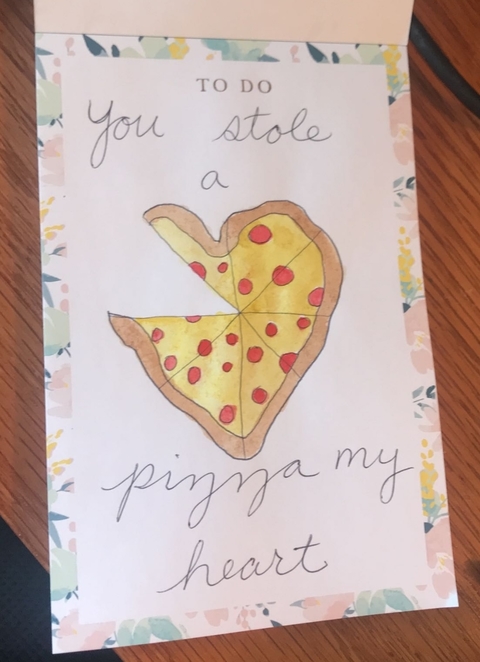 TO DO
You stole
a
pizza my
heart